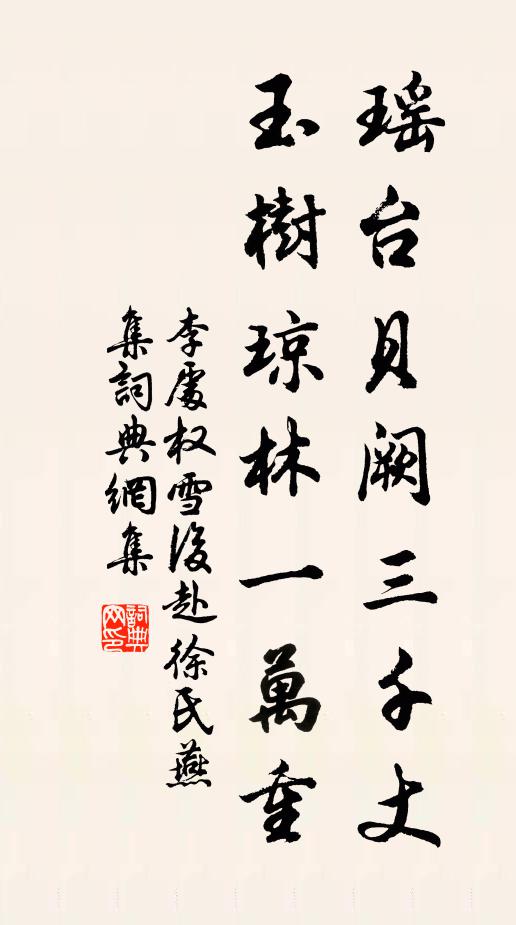 瑶台貝闕三千丈
玉樹琼林一萬重
李處权雪後赴徐氏燕
集詞典網集
詞典网印